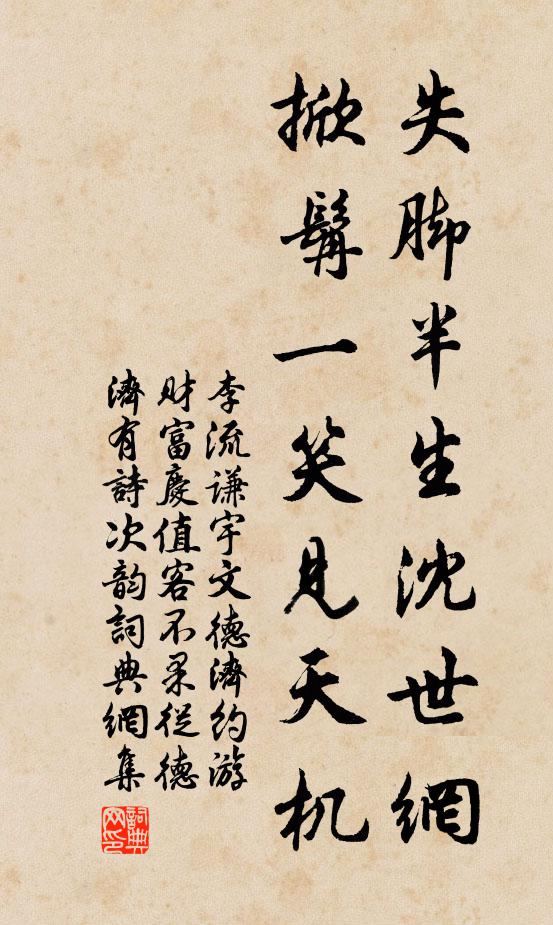 失脚半生沈世網
掀髯一笑見天机
李流谦宇文德濟約游
财富慶值客不果從德
濟有詩次韵詞典網集
詞典网印